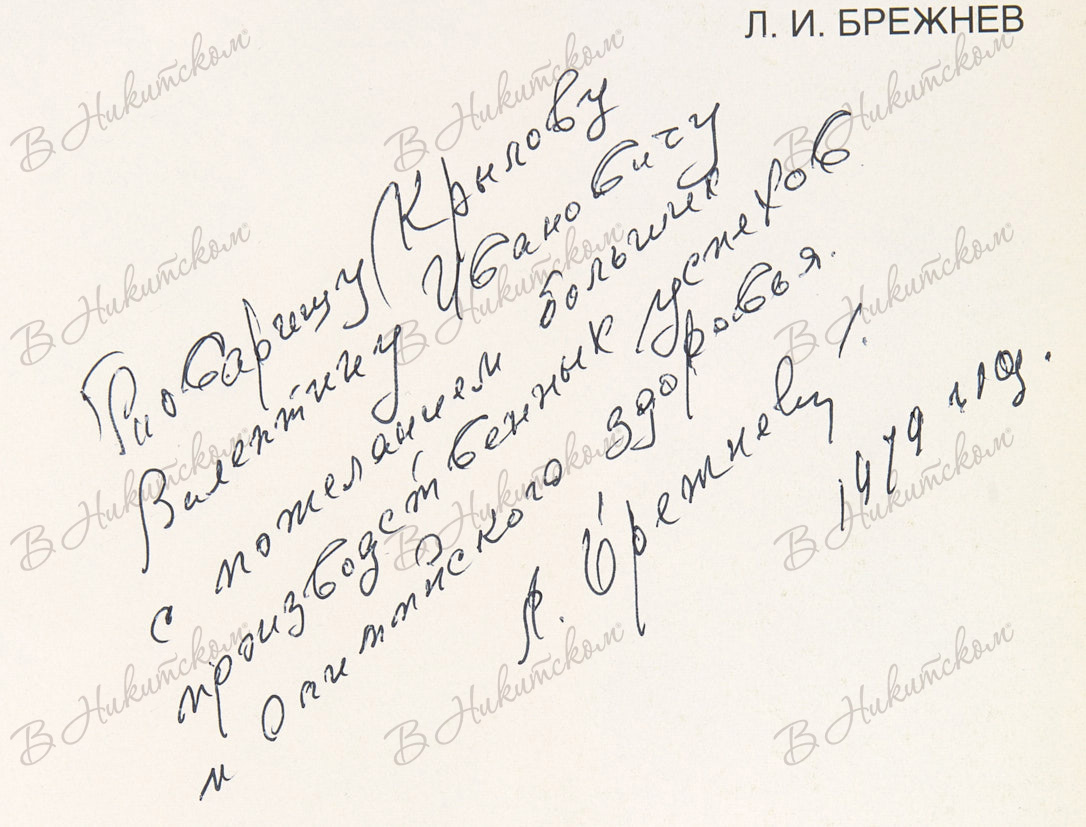 Л. И. БРЕЖНЕВ
Товарищу Крылову
Валентину Ивановичу
с пожеланием больших
производственных успехов
и олимпийского здоровья.
Л. Брежнев
1979 год.
В Никитском®
В Никитском®
В Никитском®
В Никитском®
В Никитском®
В Никитском®
В Никитском®
В Никитском®
В Никитском®
В Никитском®
В Никитском®
В Никитском®